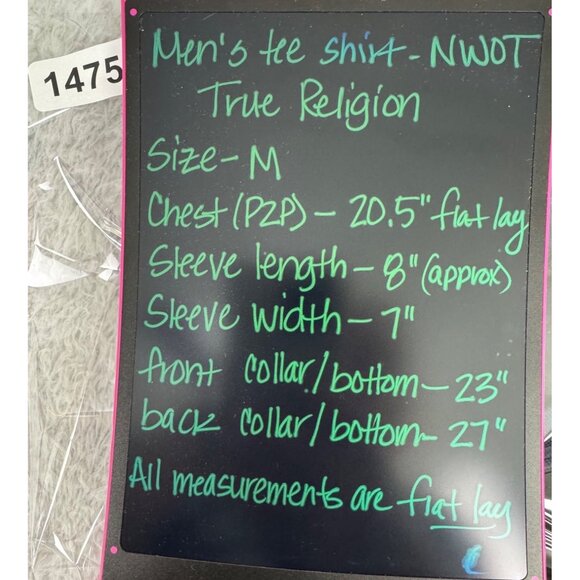 1475
Men's tee shirt - NWOT
True Religion
Size - M
Chest (P2P) - 20.5" flat lay
Sleeve length - 8" (approx)
Sleeve width - 7"
front collar/bottom - 23"
back collar/bottom - 27"
All measurements are flat lay